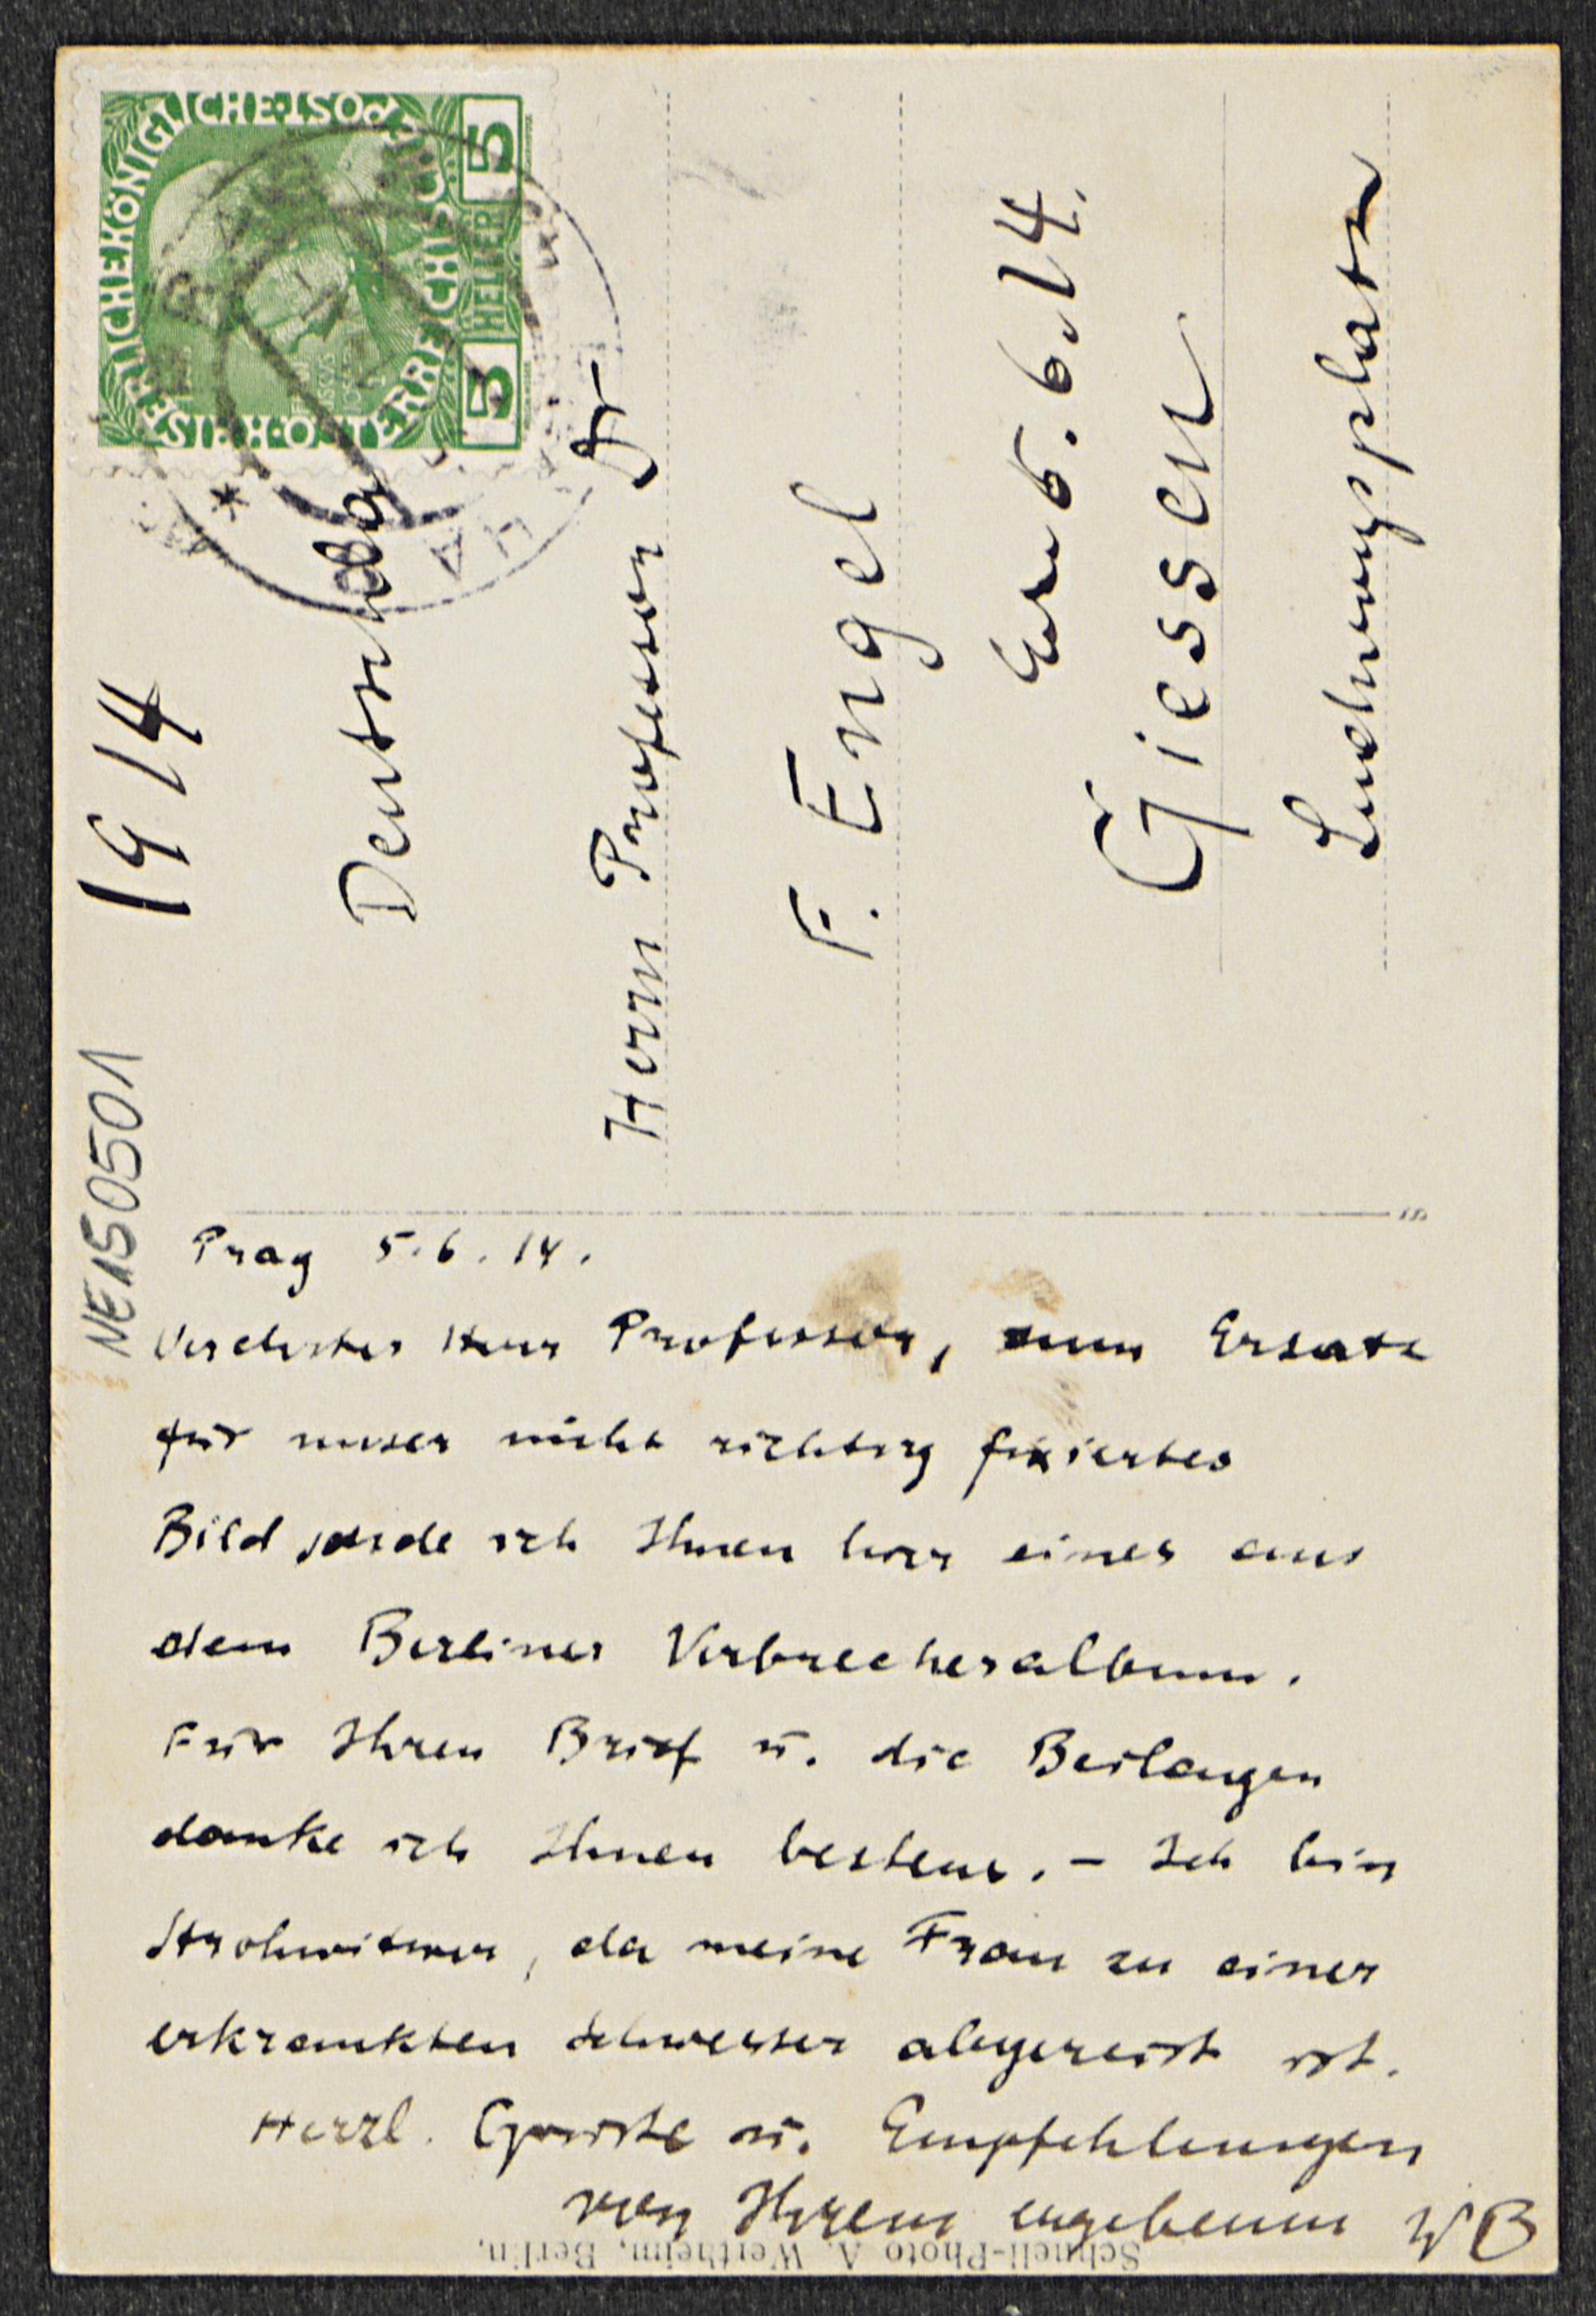 1914
Deutschld
Herrn Professor Dr
F. Engel
Erh 6.6.14.
Giessen
Ludwigsplatz
KAISERLICHE KÖNIGLICHE ÖSTERREICHISCHE POST
5 HELLER 5
NE150501
Prag 5.6.14.
Verehrter Herr Professor, zum Ersatz
für unser nicht richtig fixiertes
Bild sende ich Ihnen hier eines aus
dem Berliner Verbrecheralbum.
Für Ihren Brief u. die Beilagen
danke ich Ihnen bestens. – Ich bin
Strohwitwer, da meine Frau zu einer
erkrankten Schwester abgereist ist.
Herzl. Grüsse u. Empfehlungen
von Ihrem ergebenen WB
Schnell-Photo A. Wertheim, Berlin.